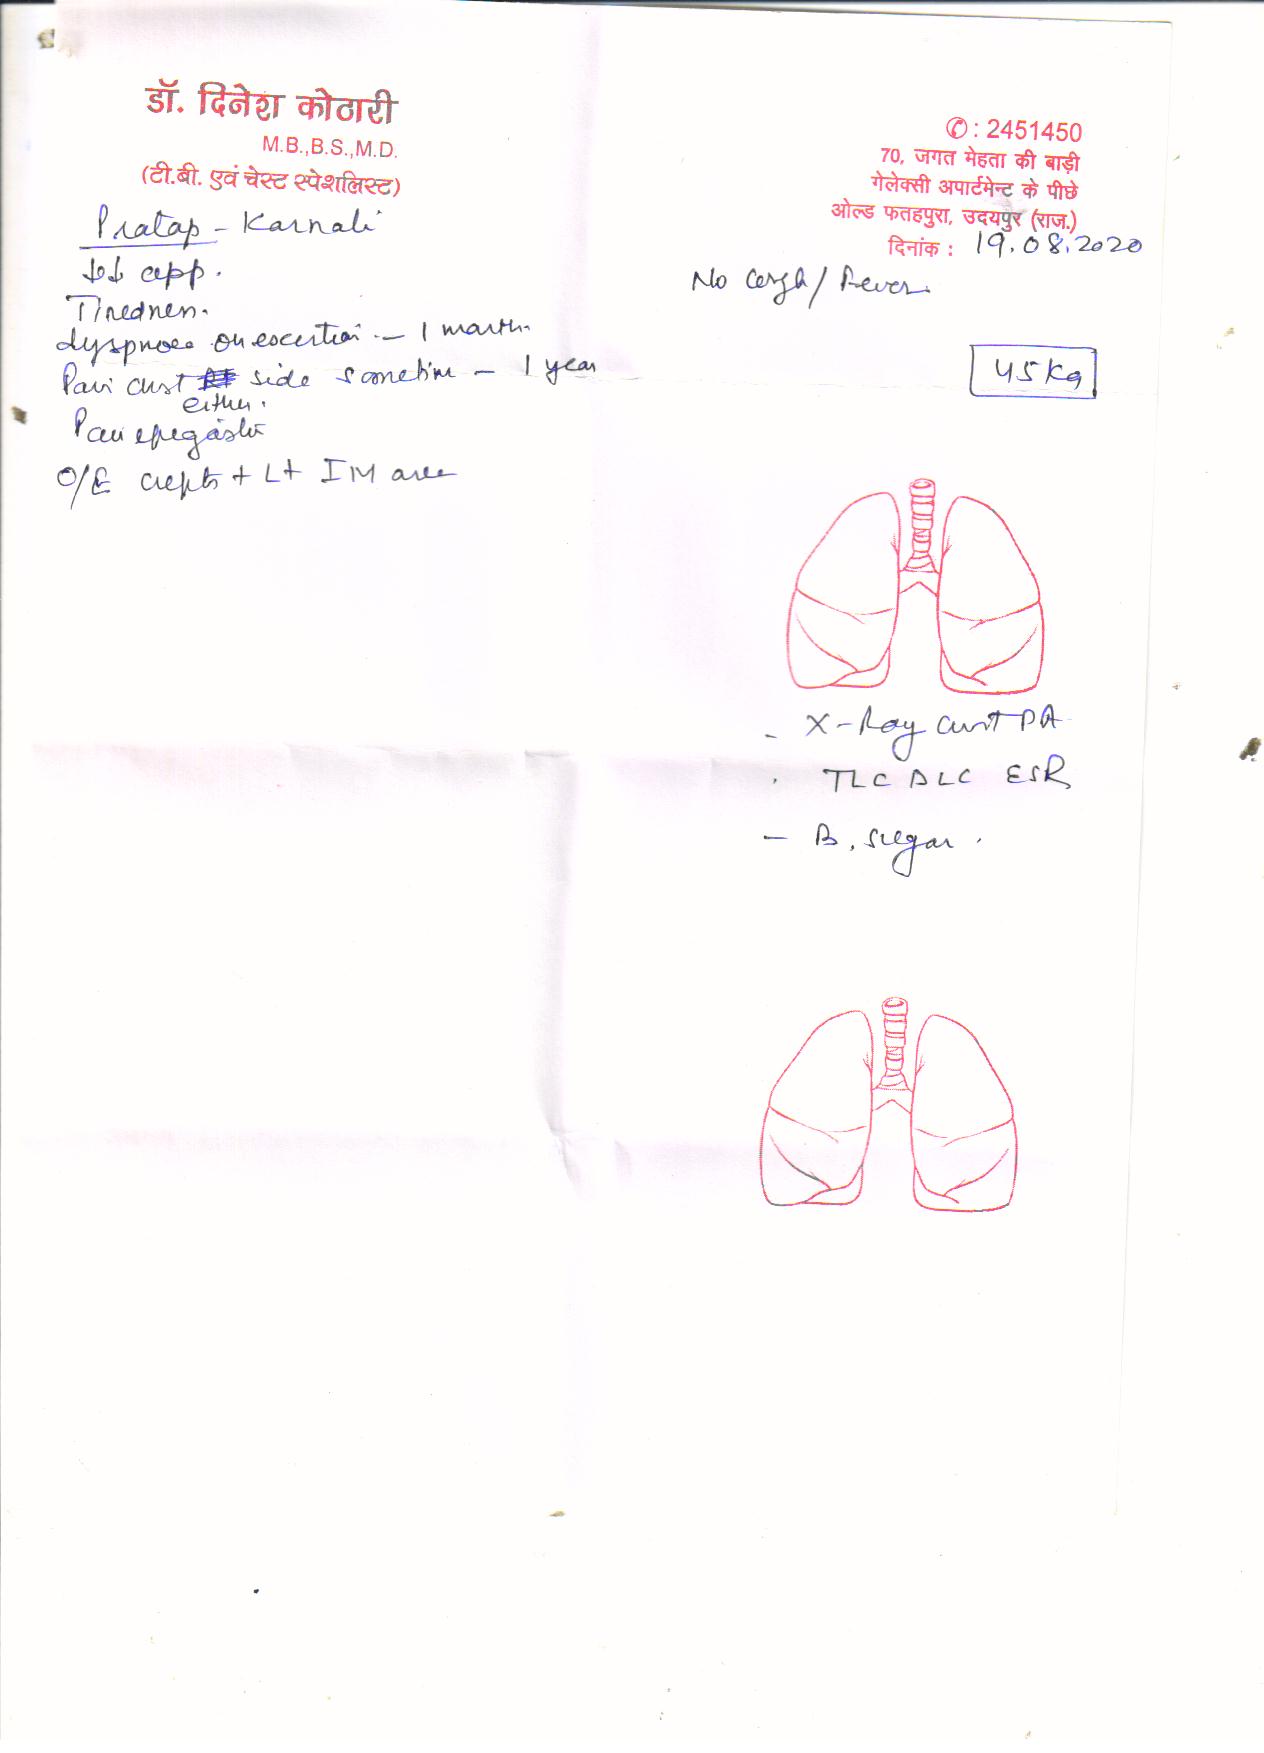 डॉ. दिनेश कोठारी
M.B.,B.S.,M.D.
(टी.बी. एवं चेस्ट स्पेशलिस्ट)
✆ : 2451450
70, जगत मेहता की बाड़ी
गेलेक्सी अपार्टमेन्ट के पीछे
ओल्ड फतहपुरा, उदयपुर (राज.)
दिनांक : 19.08.2020
Pratap - Karnali
↓↓ app.
Tiredness.
dyspnoea on exertion - 1 month
Pain chest side sometime - 1 year
either.
Pain epigastri
O/E crepts + Lt IM area
No cough / Fever.
45 Kg
- X-Ray chest PA
TLC DLC ESR
- B. sugar.